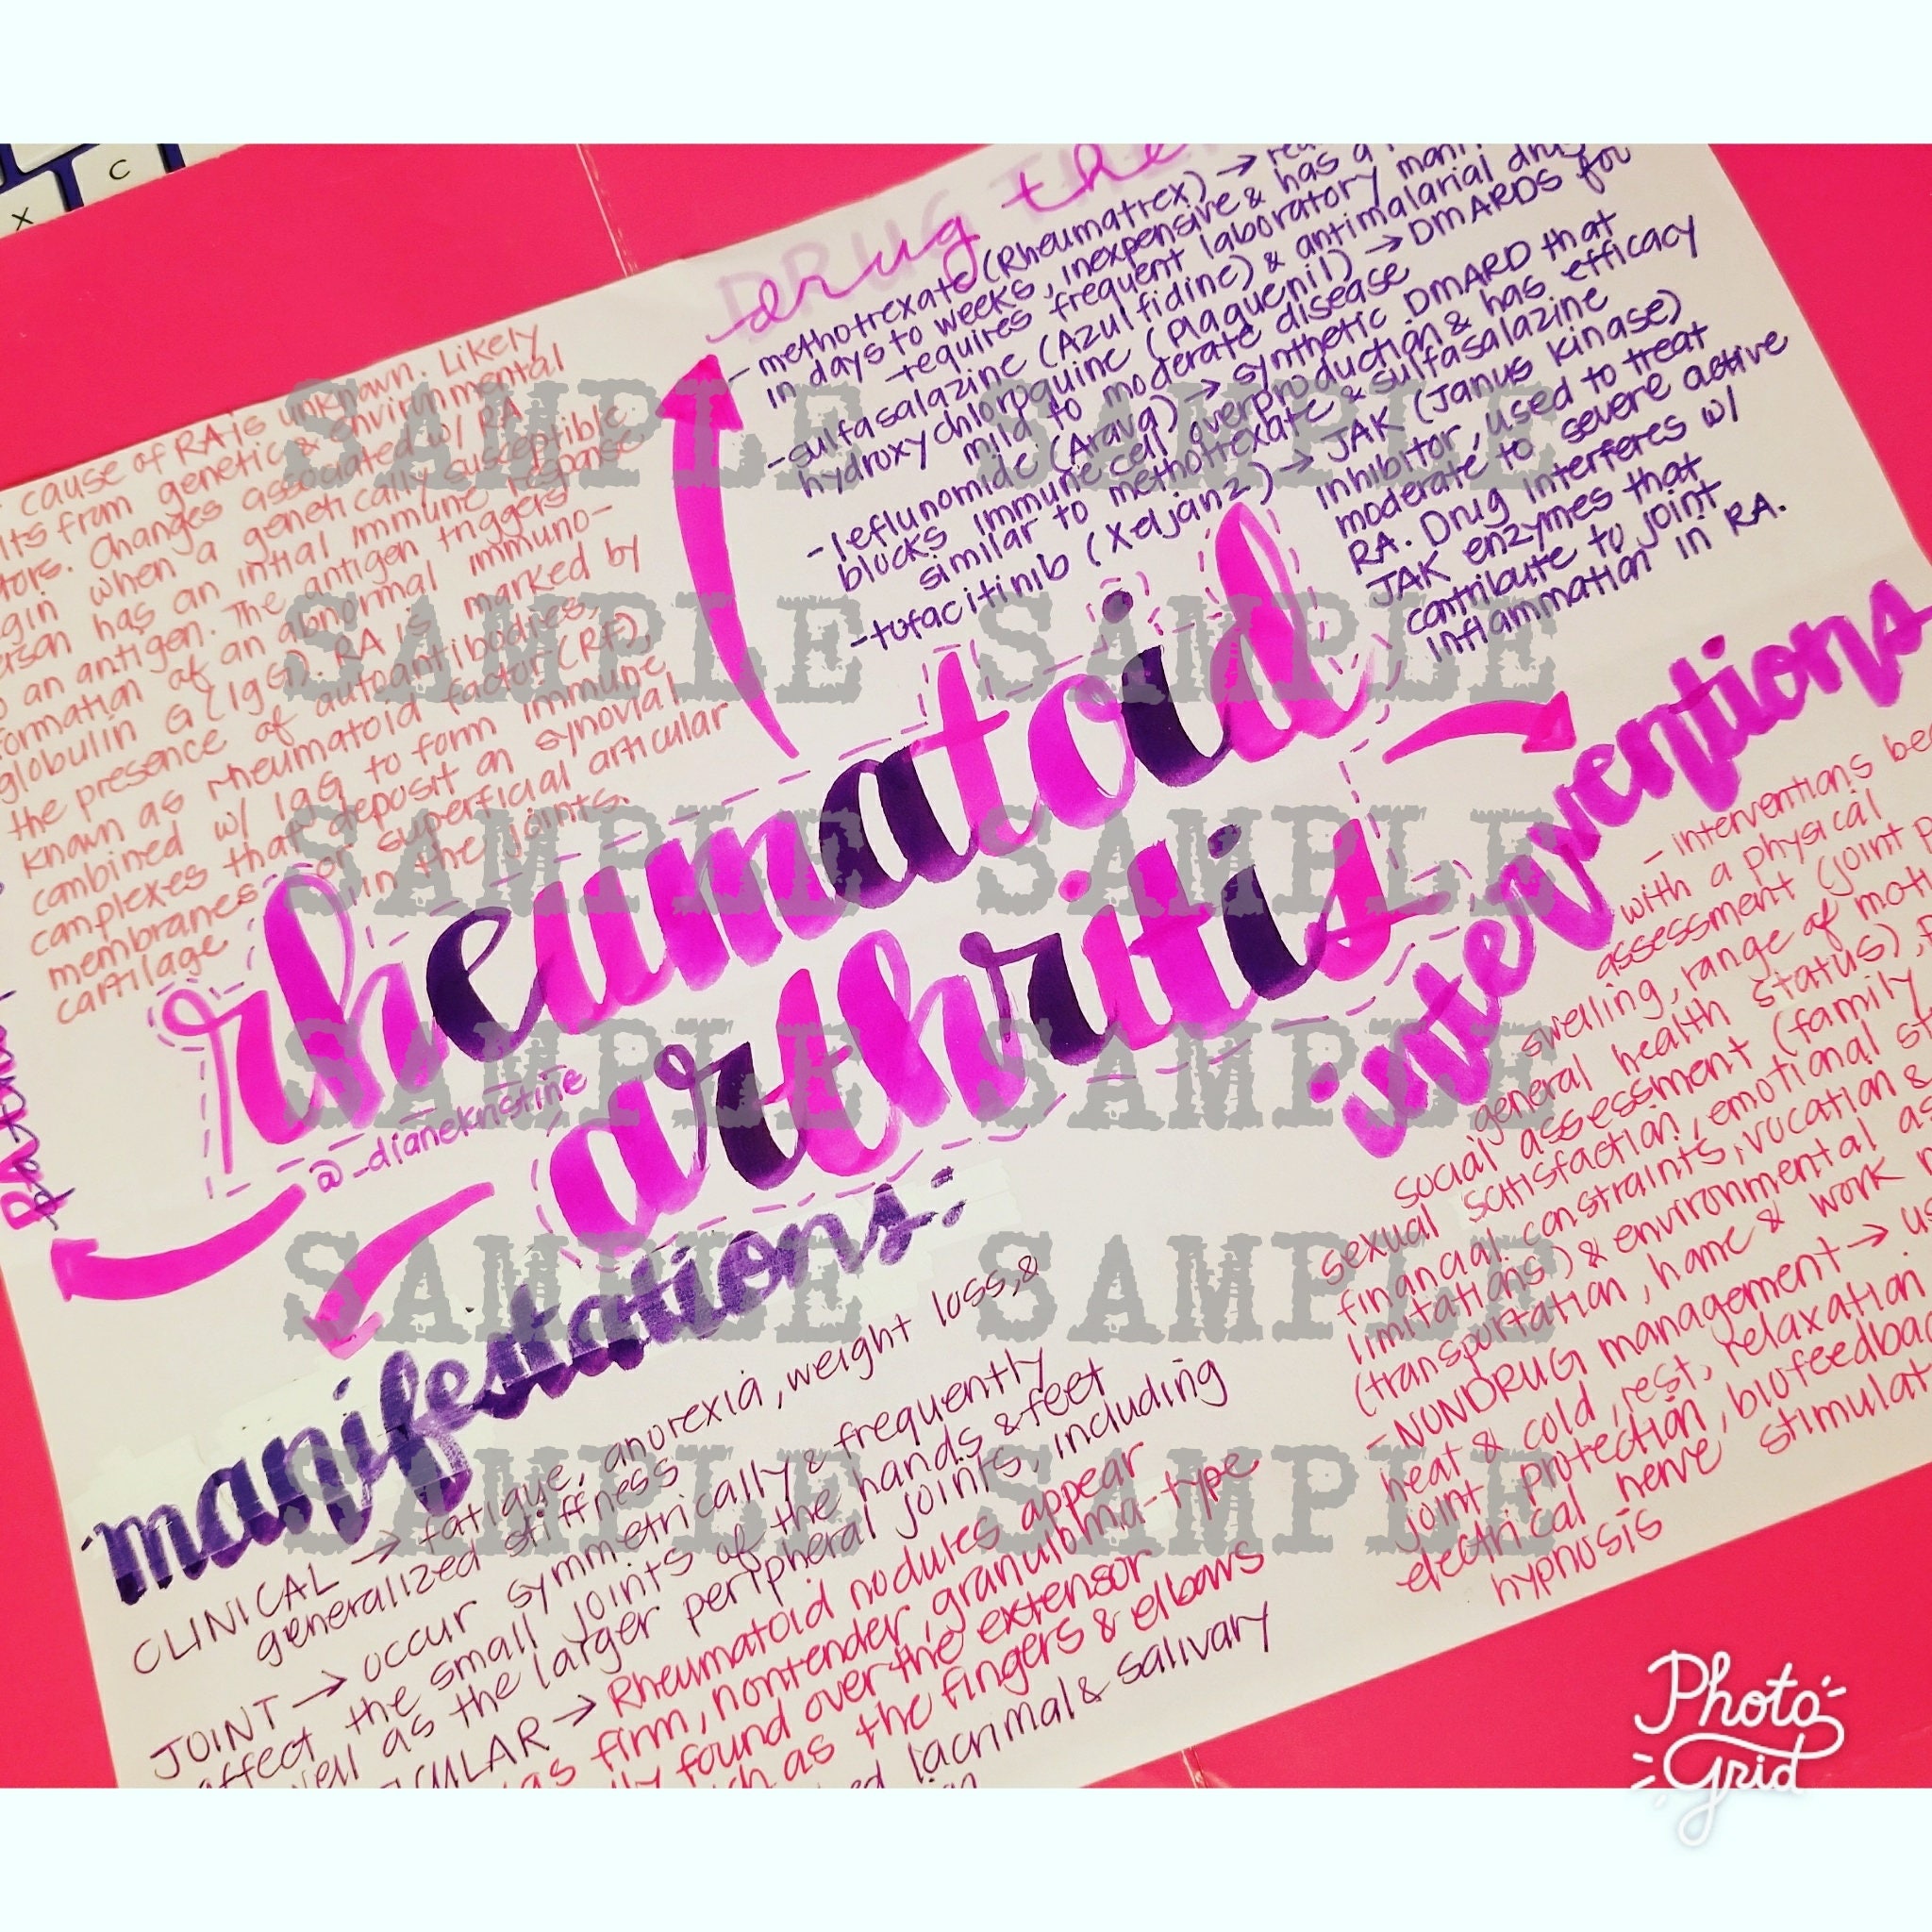 C
X
drug the
- methotrexate (Rheumatrex) →
in days to weeks, inexpensive & has a
- requires frequent laboratory
- sulfasalazine (Azulfidine) & antimalarial
hydroxychloroquine (Plaquenil) → DMARDS for
mild to moderate disease
- leflunomide (Arava) → synthetic DMARD that
blocks immune cell overproduction & has efficacy
similar to methotrexate & sulfasalazine
- tofacitinib (Xeljanz) → JAK (Janus Kinase)
inhibitor, used to treat
moderate to severe active
RA. Drug interferes w/
JAK enzymes that
contribute to joint
inflammation in RA.
cause of RA is unknown. Likely
lts from genetic & environmental
tors. Changes associated w/ RA
gin when a genetically susceptible
erson has an intial immune response
o an antigen. The antigen triggers
formation of an abnormal immuno-
globulin G (IgG). RA is marked by
the presence of autoantibodies,
known as rheumatoid factor (RF),
combined w/ IgG to form immune
complexes that deposit on synovial
membranes or superficial articular
cartilage in the joints.
rheumatoid
arthritis
@_dianekristine
RA
interventions
- interventions
with a physical
assessment (joint
swelling, range of
general health status),
social assessment (family
sexual satisfaction, emotional
financial constraints, vocation &
limitations) & environmental
(transportation, home & work
- NONDRUG management →
heat & cold, rest, relaxation
joint protection,
electrical nerve
hypnosis
manifestations:
CLINICAL → fatigue, anorexia, weight loss, &
generalized stiffness
JOINT → occur symmetrically & frequently
affect the small joints of the hands & feet
well as the larger peripheral joints, including
ICULAR → Rheumatoid nodules appear
as firm, nontender, granuloma-type
found over the extensor
as the fingers & elbows
lacrimal & salivary
SAMPLE SAMPLE
SAMPLE SAMPLE
SAMPLE SAMPLE
SAMPLE SAMPLE
SAMPLE SAMPLE
SAMPLE SAMPLE
Photo
Grid